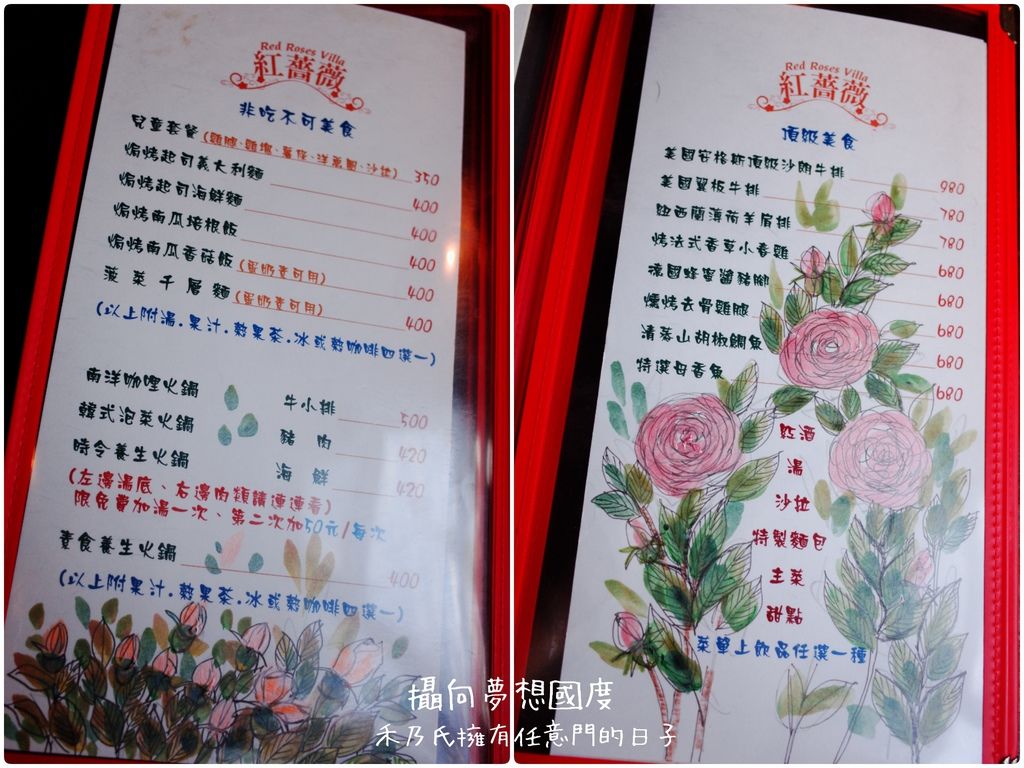 Red Roses Villa
紅薔薇
非吃不可美食
兒童套餐(雞腿、雞塊、薯條、洋蔥圈、沙拉) 350
焗烤起司義大利麵 400
焗烤起司海鮮麵 400
焗烤南瓜培根飯 400
焗烤南瓜香菇飯(蛋奶素可用) 400
菠菜千層麵(蛋奶素可用) 400
(以上附湯.果汁.熱果茶.冰或熱咖啡四選一)
南洋咖哩火鍋 牛小排 500
韓式泡菜火鍋 豬肉 420
時令養生火鍋 海鮮 420
(左邊湯底、右邊肉類請連連看)
限免費加湯一次、第二次加50元/每次
素食養生火鍋 400
(以上附果汁.熱果茶.冰或熱咖啡四選一)
Red Roses Villa
紅薔薇
頂級美食
美國安格斯頂級沙朗牛排 980
美國翼板牛排 780
紐西蘭薄荷羊肩排 780
烤法式香草小春雞 680
德國蜂蜜醬豬腳 680
燻烤去骨雞腿 680
清蒸山胡椒鯛魚 680
特選母香魚 680
紅酒
湯
沙拉
特製麵包
主菜
甜點
菜單上飲品任選一種
攝向夢想國度
禾乃氏擁有任意門的日子